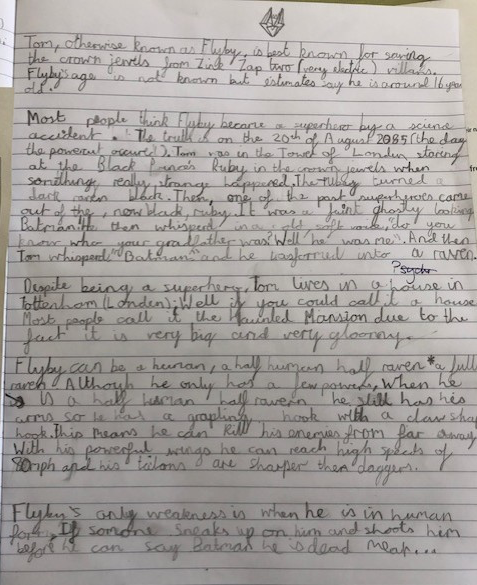 Tom, otherwise known as Flyby, is best known for saving
the crown jewels from Zink Zap two (very electric) villans.
Flyby's age is not known but estimates say he is around 16 year
old.
Most people think Flyby became a superhero by a science
accident. The truth is on the 20th of August 2085 (the day
the powercut occured). Tom was in the Tower of London staring
at the Black Prince's Ruby in the crown jewels when
something really strange happened. The ruby turned a
dark raven black. Then, one of the past superheroes came
out of the, now black, ruby. It was a faint ghostly looking
Batman. He then whisperd in a old soft voice, "do you
know who your grandfather was? Well he was me". And then
Tom whisperd "Batman" and he trasforred into a raven.
Psycho
Despite being a superhero, Tom lives in a house in
Tottenham (London); Well if you could call it a house
Most people call it the Haunted Mansion due to the
fact it is very big and very gloomy.
Flyby can be a human, a half human half raven * a full
raven Although he only has a few powers, When he
is a half human half raven he still has his
arms so he has a grapling hook with a claw sha
hook. This means he can kill his enemies from far away
With his powerful wings he can reach high speeds of
80mph and his tallons are sharper then daggers.
Flyby's only weakness is when he is in human
form, If somone sneaks up on him and shoots him
before he can say Batman he is dead meat...